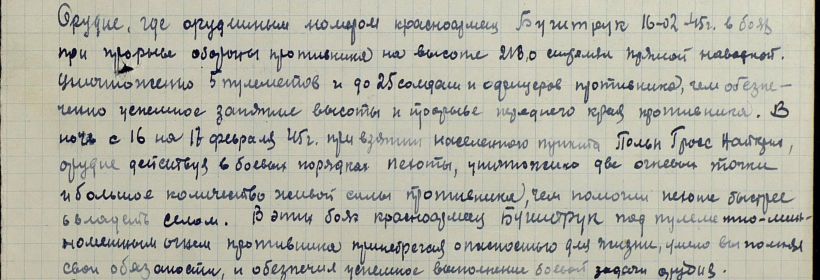 Орудие, где орудийным номером красноармеец Бунштрук 16-02-45г. в боях
при прорыве обороны противника на высоте 218,0 стреляя прямой наводкой.
уничтоженно 5 пулеметов и до 25 солдат и офицеров противника, чем обеспе-
ченно успешное занятие высоты и прорыве переднего края противника. В
ночь с 16 на 17 февраля 45г. при взятии населенного пункта Польн Гросс
орудие действуя в боевых порядках пехоты, уничтожило две огневых точки
и большое количество живой силы противника, чем помогли пехоте быстрее
овладеть селом. В этих боях красноармеец под пулеметно-мин-
нометным огнем противника пренебрегая опасностью для жизни, умело выполнял
свои обязаности, и обеспечил успешное выполнение боевой задачи орудия.